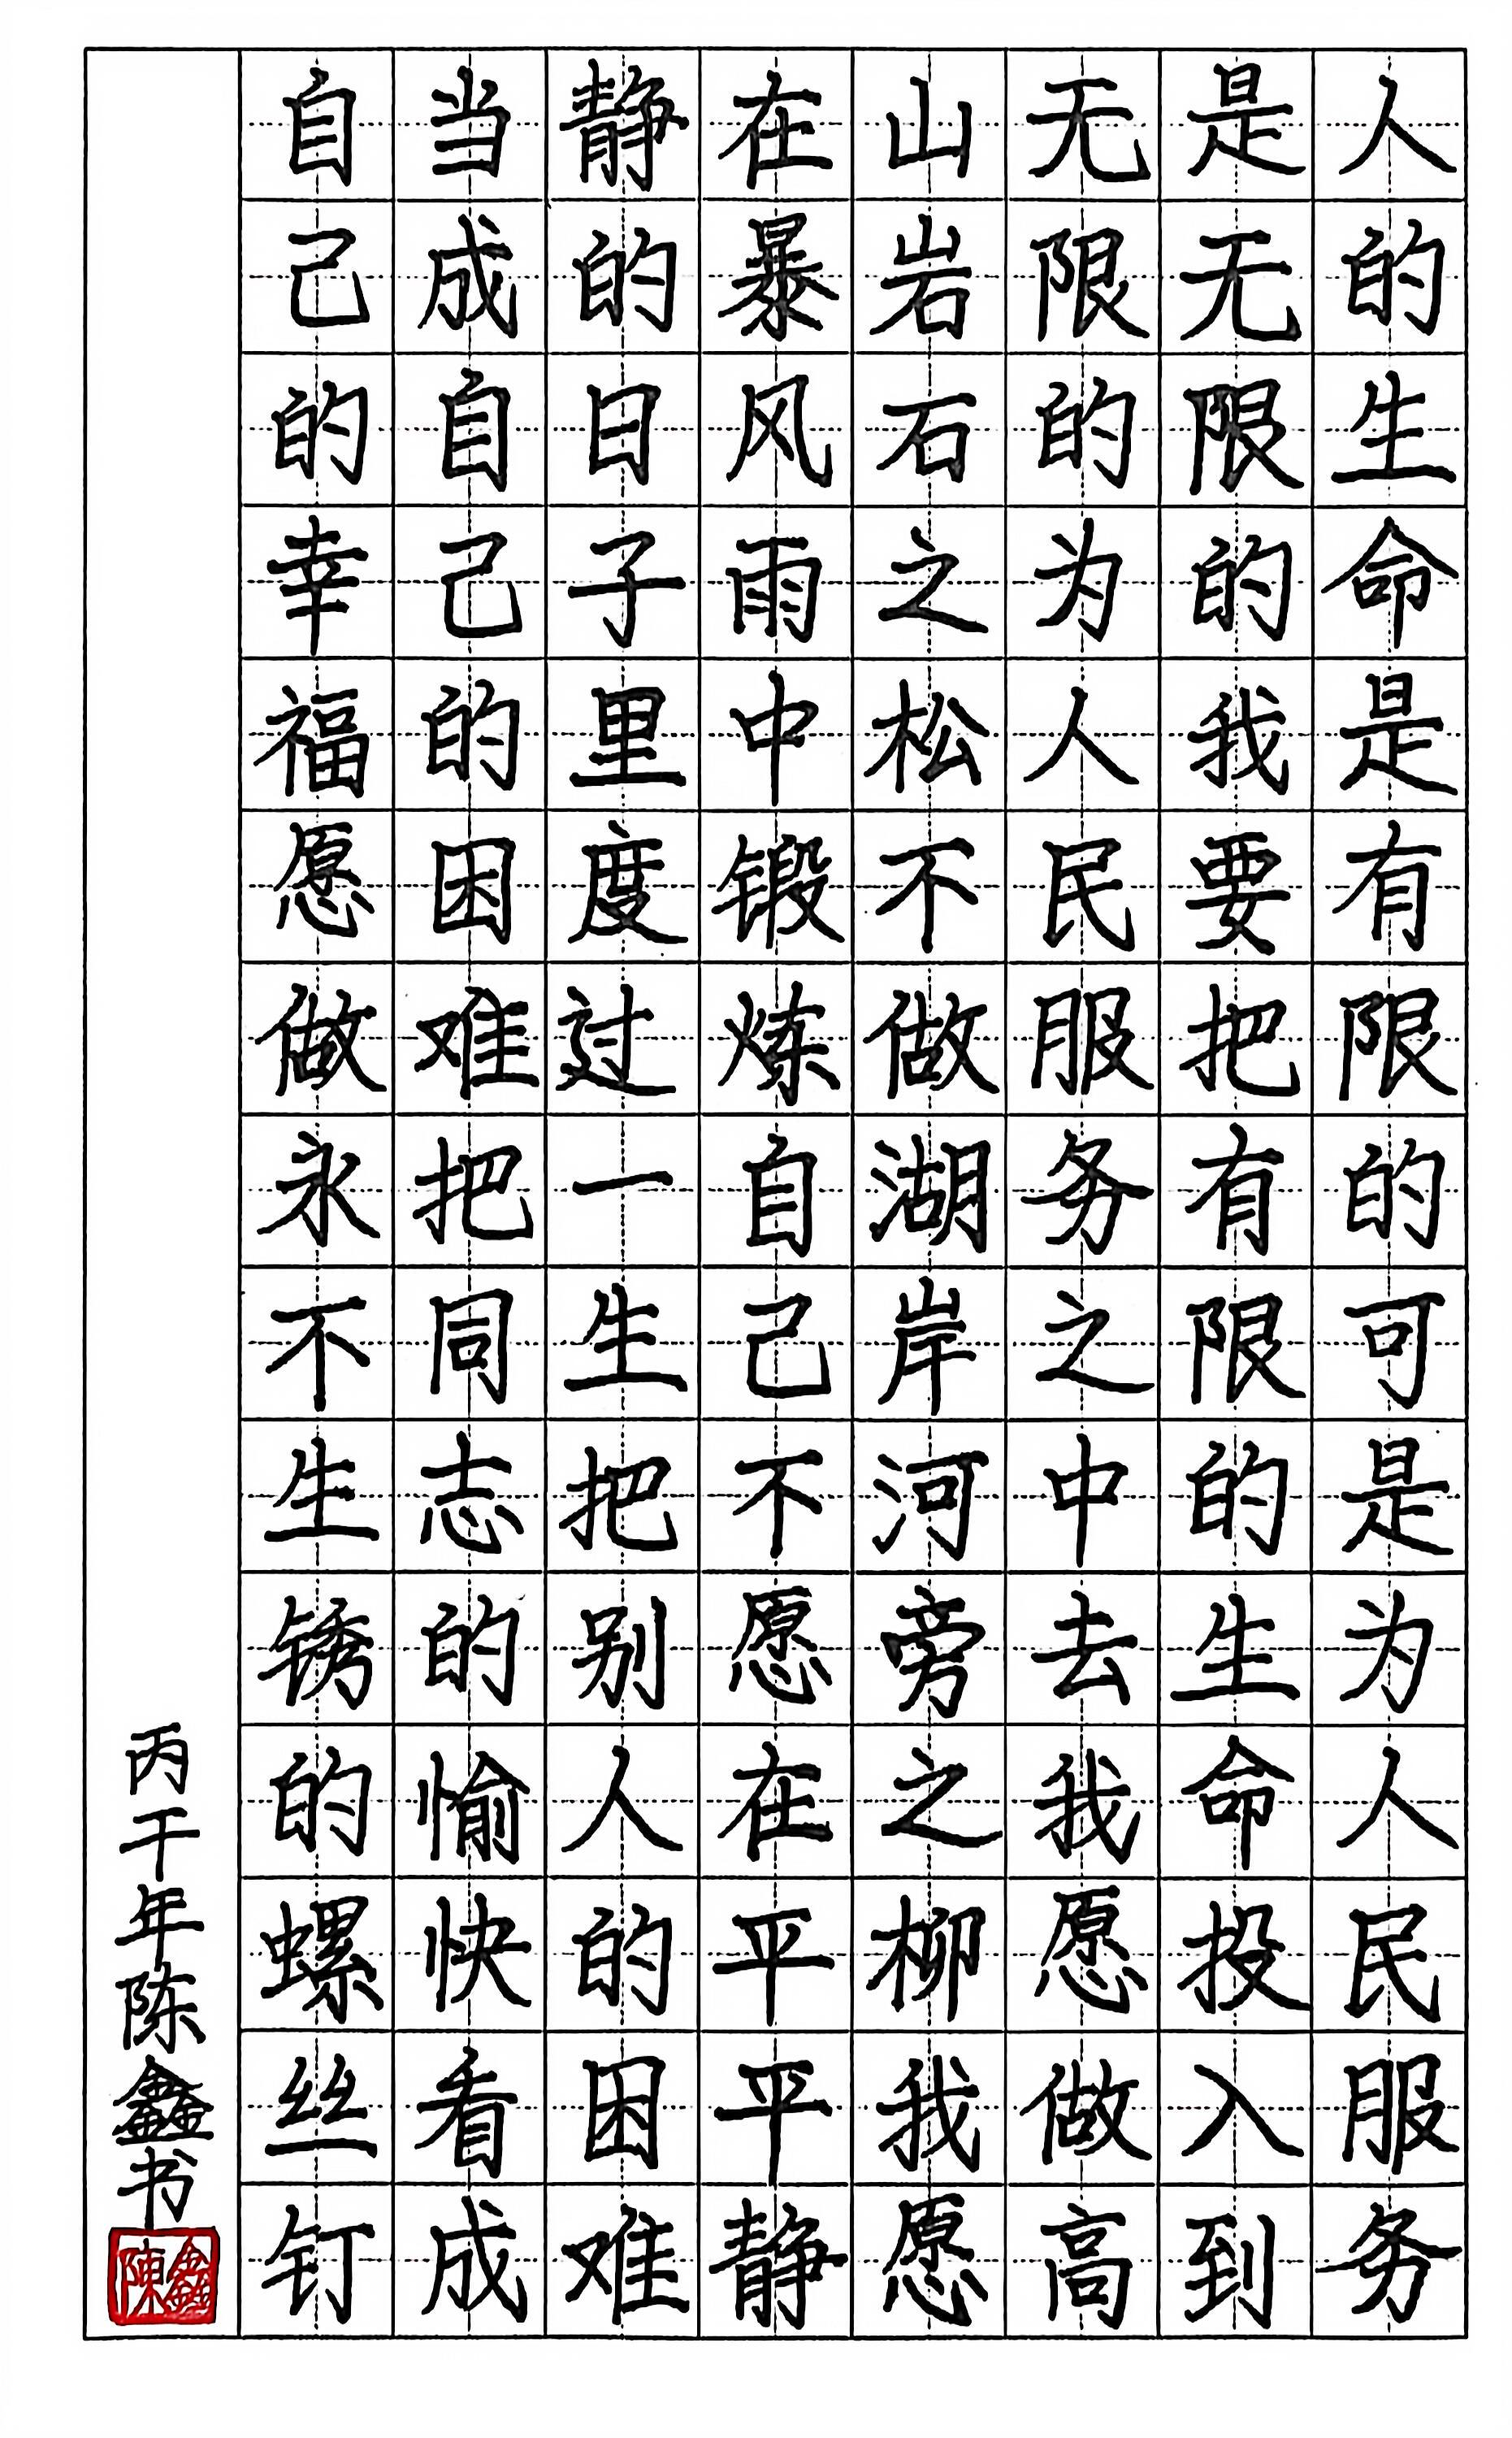 人的生命是有限的可是为人民服务
是无限的我要把有限的生命投入到
无限的为人民服务之中去我愿做高
山岩石之松不做湖岸河旁之柳我愿
在暴风雨中锻炼自己不愿在平平静
静的日子里度过一生把别人的困难
当成自己的困难把同志的愉快看成
自己的幸福愿做永不生锈的螺丝钉
丙干年陈鑫书
陳鑫